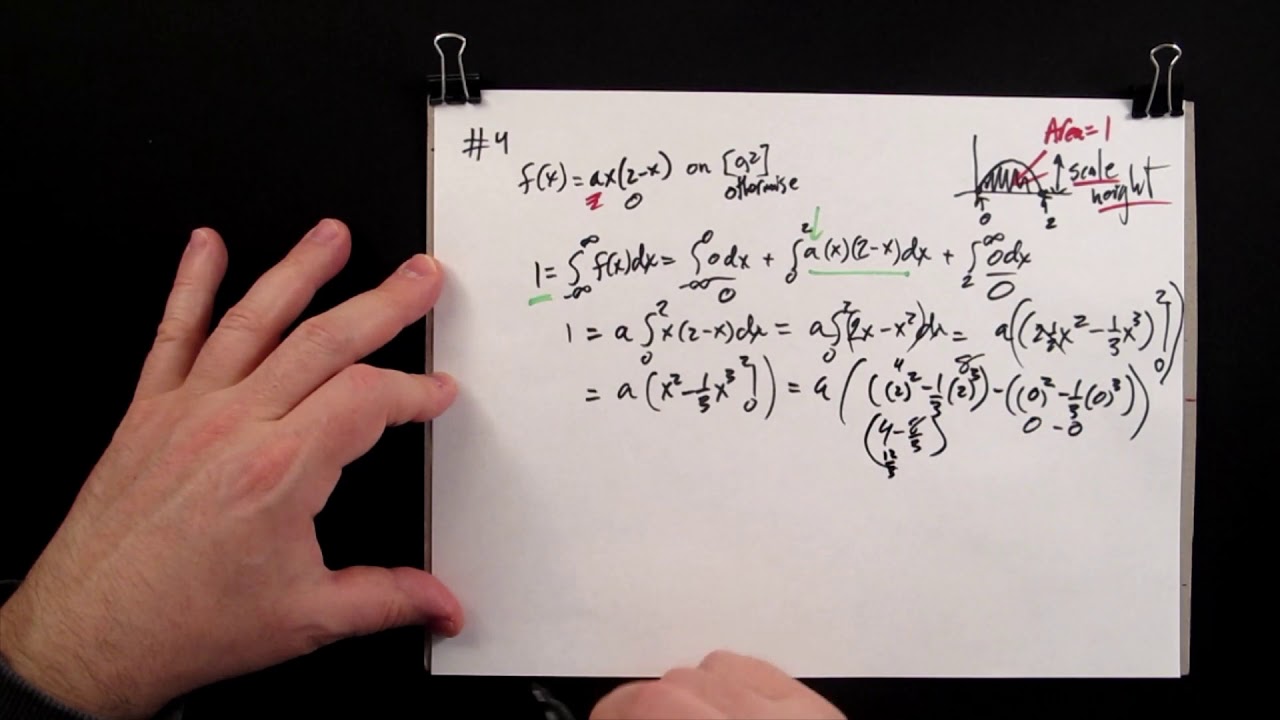 #4
f(x) = ax(2-x) on [0,2]
0 otherwise
Area = 1
scale
height
0 2
1 = ∫_{-∞}^{∞} f(x)dx = ∫_{-∞}^{0} 0dx + ∫_{0}^{2} a(x)(2-x)dx + ∫_{2}^{∞} 0dx
0 0
1 = a∫_{0}^{2} x(2-x)dx = a∫_{0}^{2} (2x-x²)dx = a((2½x² - ⅓x³)]_{0}^{2})
= a(x² - ⅓x³]_{0}^{2}) = a(((2)² - ⅓(2)³) - ((0)² - ⅓(0)³))
4 8
(4 - 8/3) 0 - 0
12/3